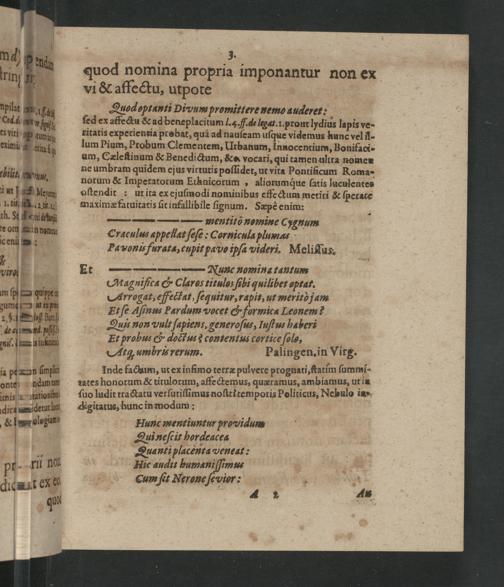 3.
quod nomina propria imponantur non ex
vi & affectu, utpote
Quod optanti Divum promittere nemo auderet:
sed ex affectu & ad beneplacitum l. 4. ff. de legat. 1. prout lydius lapis ve-
ritatis experientia probat, quâ ad nauseam usque videmus hunc vel il-
lum Pium, Probum Clementem, Urbanum, Innocentium, Bonifaci-
um, Cælestinum & Benedictum, &c. vocari, qui tamen ultra nomen
ne umbram quidem ejus virtutis possidet, ut vita Pontificum Roma-
norum & Imperatorum Ethnicorum, aliorumque satis luculenter
ostendit: ut ita ex ejusmodi nominibus effectum metiri & sperare
maximæ fatuitatis sit infallibile signum. Sæpè enim:
mentitô nomine Cygnum
Craculus appellat sese: Cornicula plumas
Pavonis furata, cupit pavo ipsa videri. Melissus.
Et Nunc nomina tantum
Magnifica & Claros titulos sibi quilibet optat.
Arrogat, effectat, sequitur, rapit, ut meritò jam
Et se Asinus Pardum vocet & formica Leonem?
Quis non vult sapiens, generosus, Iustus haberi
Et probus & doctus? contentus cortice solo,
Atq; umbris rerum. Palingen. in Virg.
Inde factum, ut ex infimo terræ pulvere prognati, statim summi-
tates honorum & titulorum, affectemus, quæramus, ambiamus, ut in
suo ludit tractatu versutissimus nostri temporis Politicus, Nebulo in-
digitatus, hunc in modum:
Hunc mentiuntur providum
Qui nescit hordeacea
Quanti placenta veneat:
Hic audit humanissimus
Cum sit Nerone sevior:
A 2 An